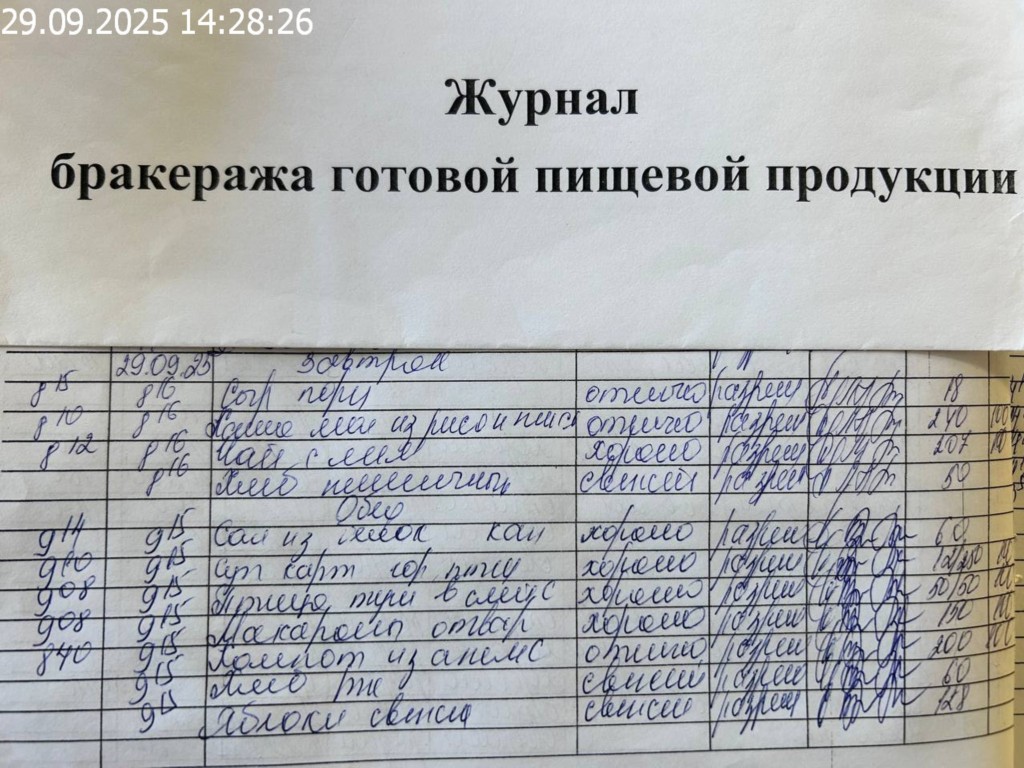 29.09.2025 14:28:26
Журнал
бракеража готовой пищевой продукции
29.09.25 Завтрак
8 15 8 16 Сыр отлично разреш 18
8 10 8 16 Каша из рис и отлично разреш 240
8 12 8 16 Чай с хорошо разреш 207
8 16 Хлеб пшеничный свежий разреш 50
Обед
9 14 9 15 Сал из хорошо разреш 60
9 10 9 15 Суп карт гор хорошо разреш
9 08 9 15 Птица туш в хорошо разреш 50/50
9 08 9 15 Макароны отвар хорошо разреш 150
8 40 9 15 Компот из отлично разреш 200
9 15 Хлеб рж свежий разреш 60
9 15 Яблоки свежие свежий разреш 128